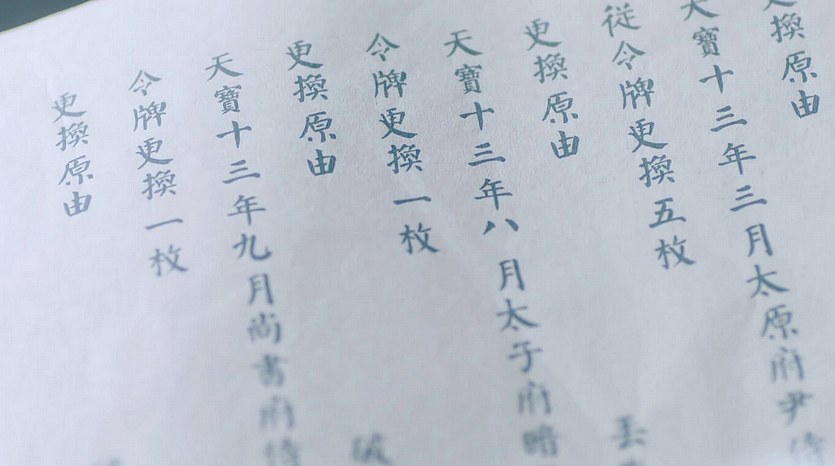 更換原由
天寶十三年三月太原府尹侍
從令牌更換五枚
更換原由 丟
天寶十三年八月太子府暗
令牌更換一枚
更換原由 破
天寶十三年九月尚書府侍
令牌更換一枚
更換原由